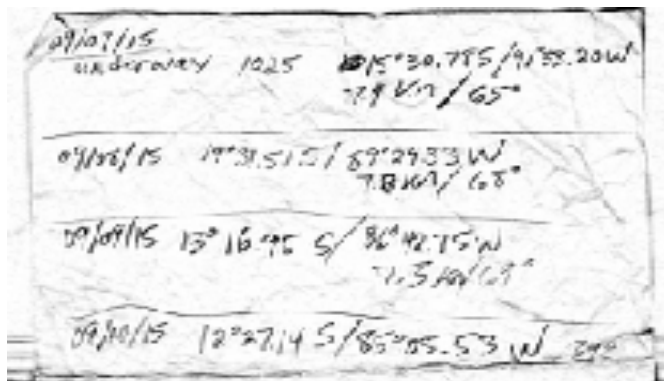 09/07/15
underway 1025 15°30.78S/91°55.20W
7.9 kn / 65°
09/08/15 14°31.51S/ 89°29.33 W
7.8 kn/ 68°
09/09/15 13° 16.95 S/ 86°42.75 W
7.5 kn/69°
09/10/15 12°27.14 S/85°05.53 W